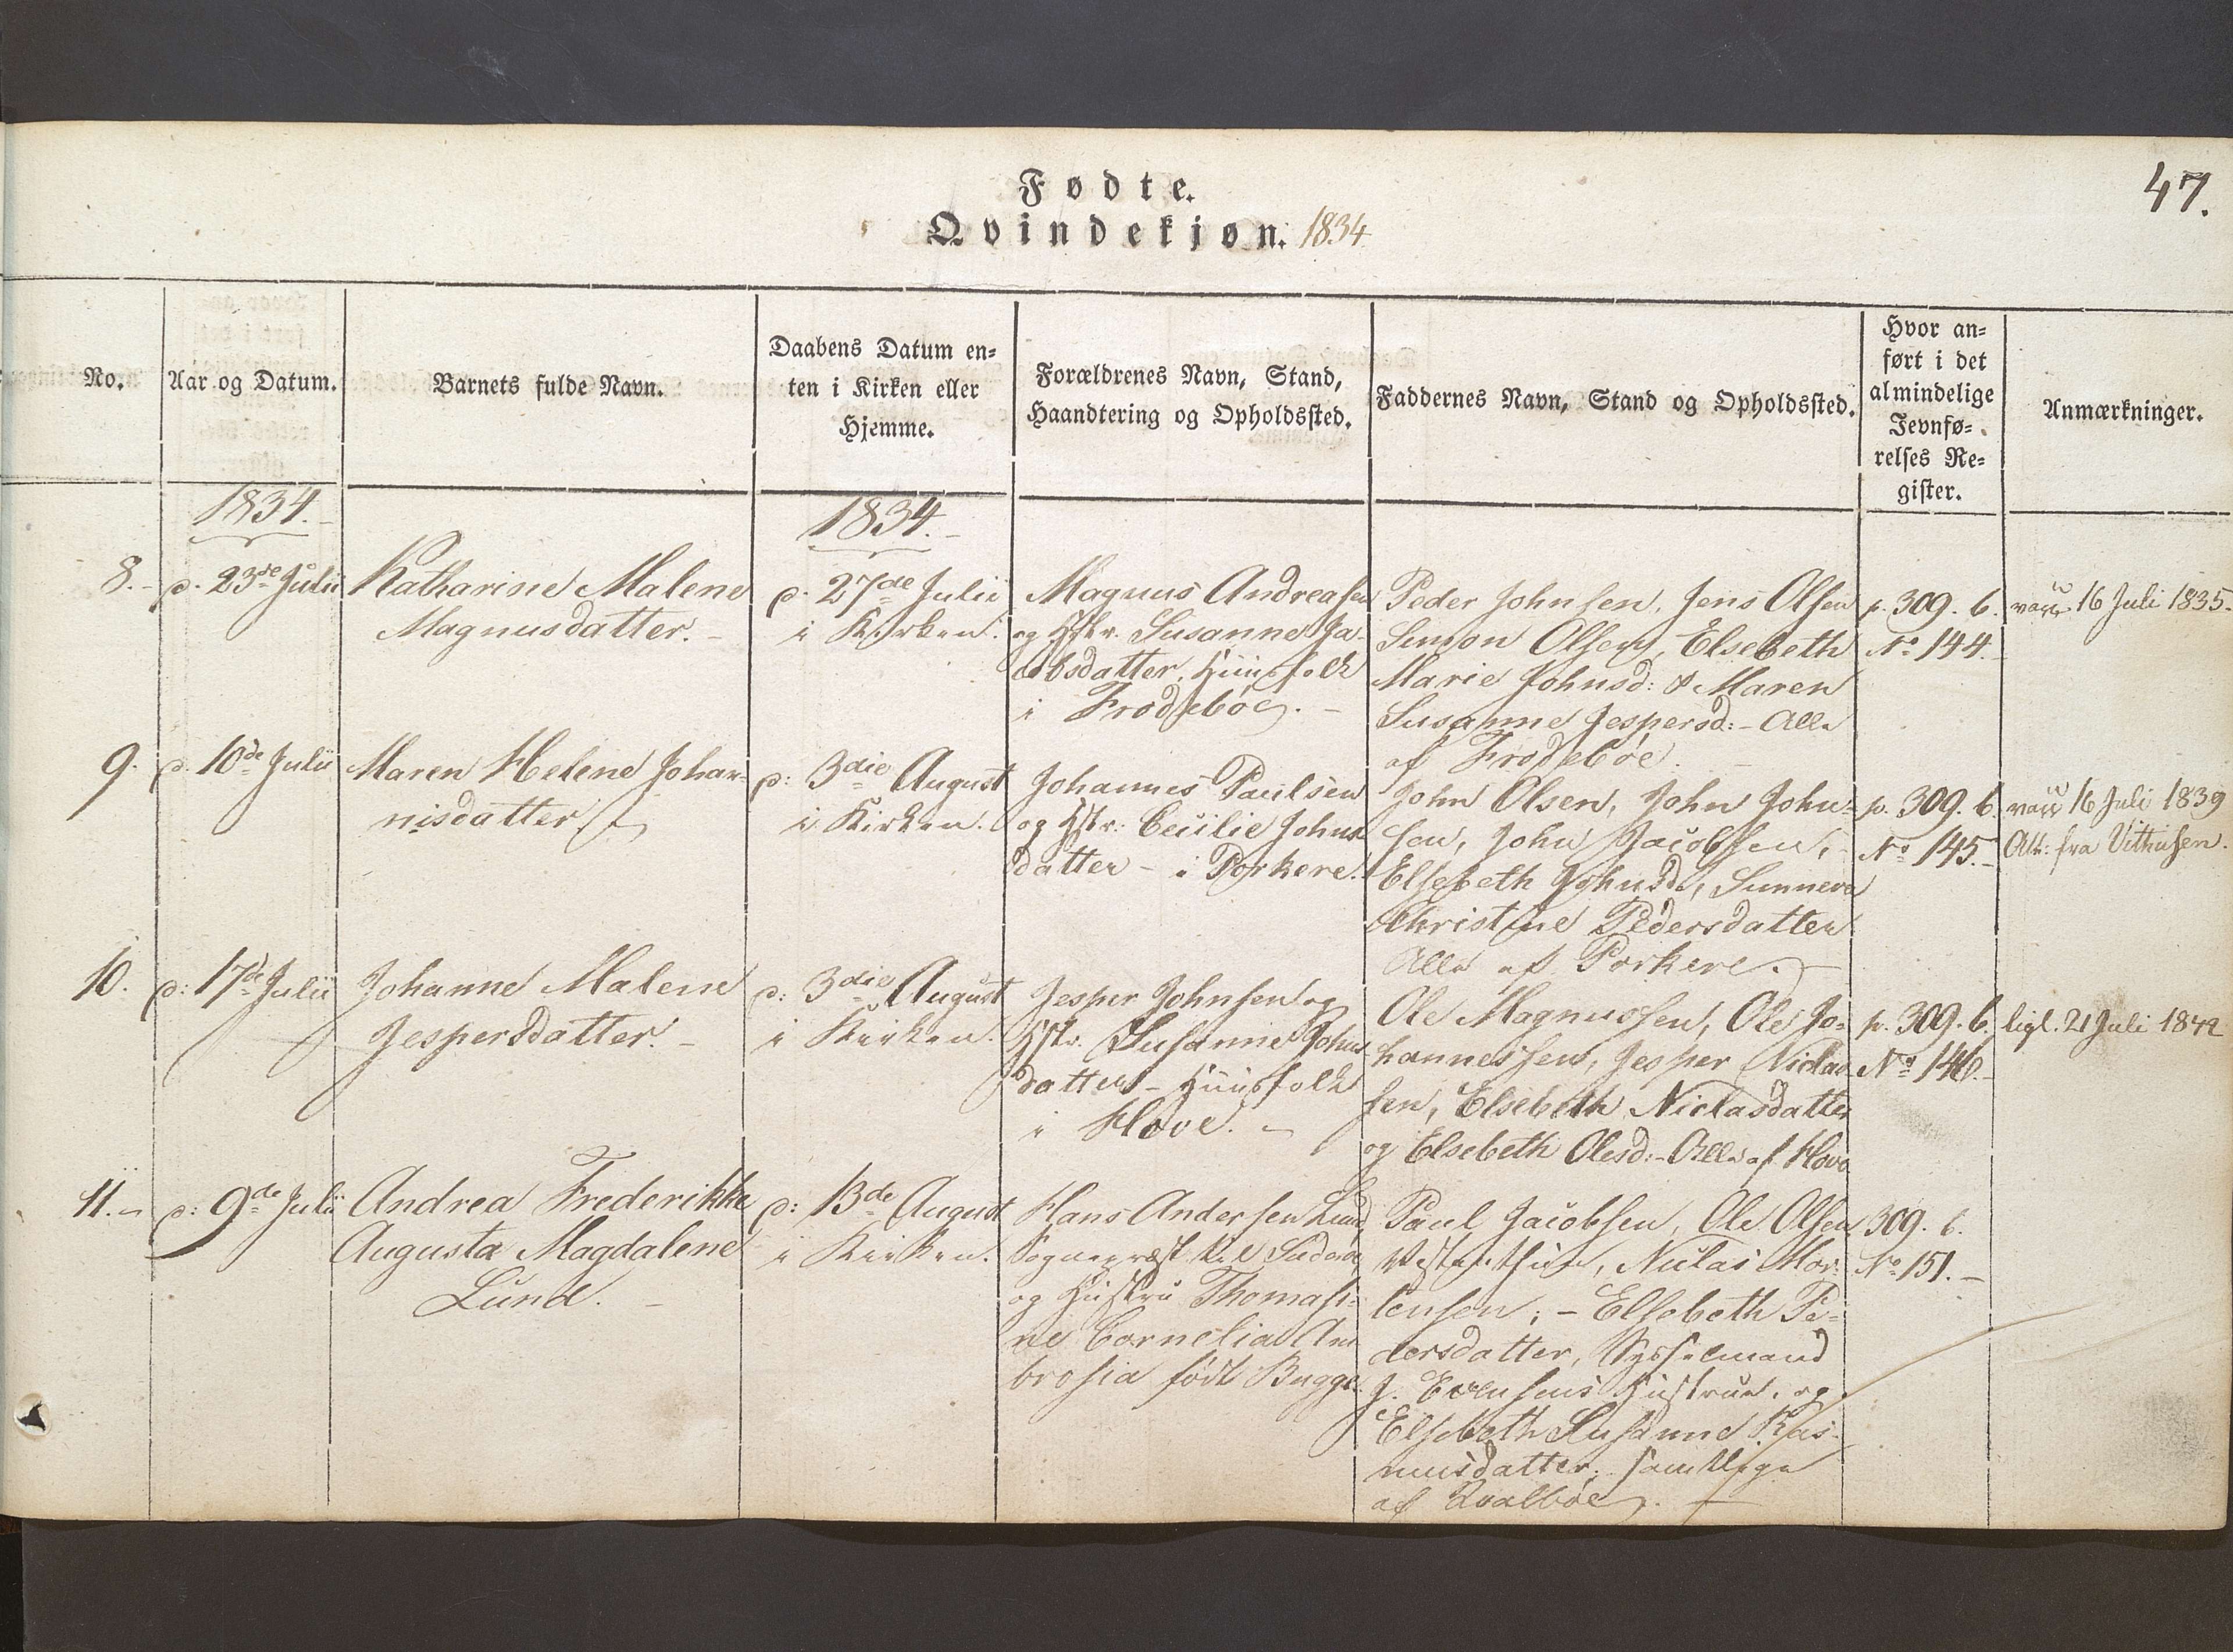 47.
Fødte.
Qvindekjøn. 1834
No.
Aar og Datum.
Barnets fulde Navn.
Daabens Datum en=
ten i Kirken eller
Hjemme.
Forældrenes Navn, Stand,
Haandtering og Opholdssted.
Faddernes Navn, Stand og Opholdssted.
Hvor an=
ført i det
almindelige
Jevnfø=
relses Re=
gister.
Anmærkninger.
1834.
1834.
8.
d. 23de Julii
Katharine Malene
Magnusdatter.
d. 27de Julii
i Kirken.
Magnus Andreasen
og Hstr. Susanne Ja-
cobsdatter, Huusfolk
i Frodebøe.
Peder Johnsen, Jens Olsen
Simon Olsen, Elsebeth
Marie Johnsd: & Maren
Susanne Jespersd: - Alle
af Frodebøe.
p. 309. 6.
No 144.
vacc 16 Juli 1835.
9.
d. 10de Julii
Maren Helene Johan-
nisdatter
d: 3die August
i Kirken.
Johannes Paulsen
og Hstr: Cecilie Johns
datter - i Porkere.
John Olsen, John John=
sen, John Jacobsen,
Elsebeth Johnsd:, Sunneva
Christine Pedersdatter
Alle af Porkere.
p. 309. 6.
No 145.
vacc 16 Juli 1839
Att: fra Vithusen.
10.
d: 17de Julii
Johanne Malene
Jespersdatter.
d: 3die August
i Kirken.
Jesper Johnsen og
Hstr. Susanne Johns
datter - Huusfolk
i Hove.
Ole Magnussen, Ole Jo=
hannessen, Jesper Niclas
sen, Elsebeth Niclasdatter
og Elsebeth Olesd: - Alle af Hove
p. 309. 6.
No 146.
ligl. 21 Juli 1842
11.
d: 9de Julii
Andrea Frederikke
Augusta Magdalene
Lund.
d: 13de August
i Kirken.
Hans Andersen Lund
Sognepræst til Suderøe
og Hustru Thomasi=
ne Cornelia Am
brosia født Bugge.
Paul Jacobsen, Ole Olsen
Niclas Mor=
tensen; - Elsebeth Pe=
dersdatter, Sysselmand
J. Evensens Hustrue, og
Elsebeth Susanne Ras-
musdatter, samtlige
af Qvalbøe.
309. 6.
No 151.